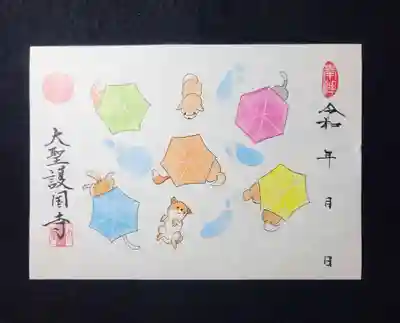 奉拝
令和
年
月
日
大聖護国寺